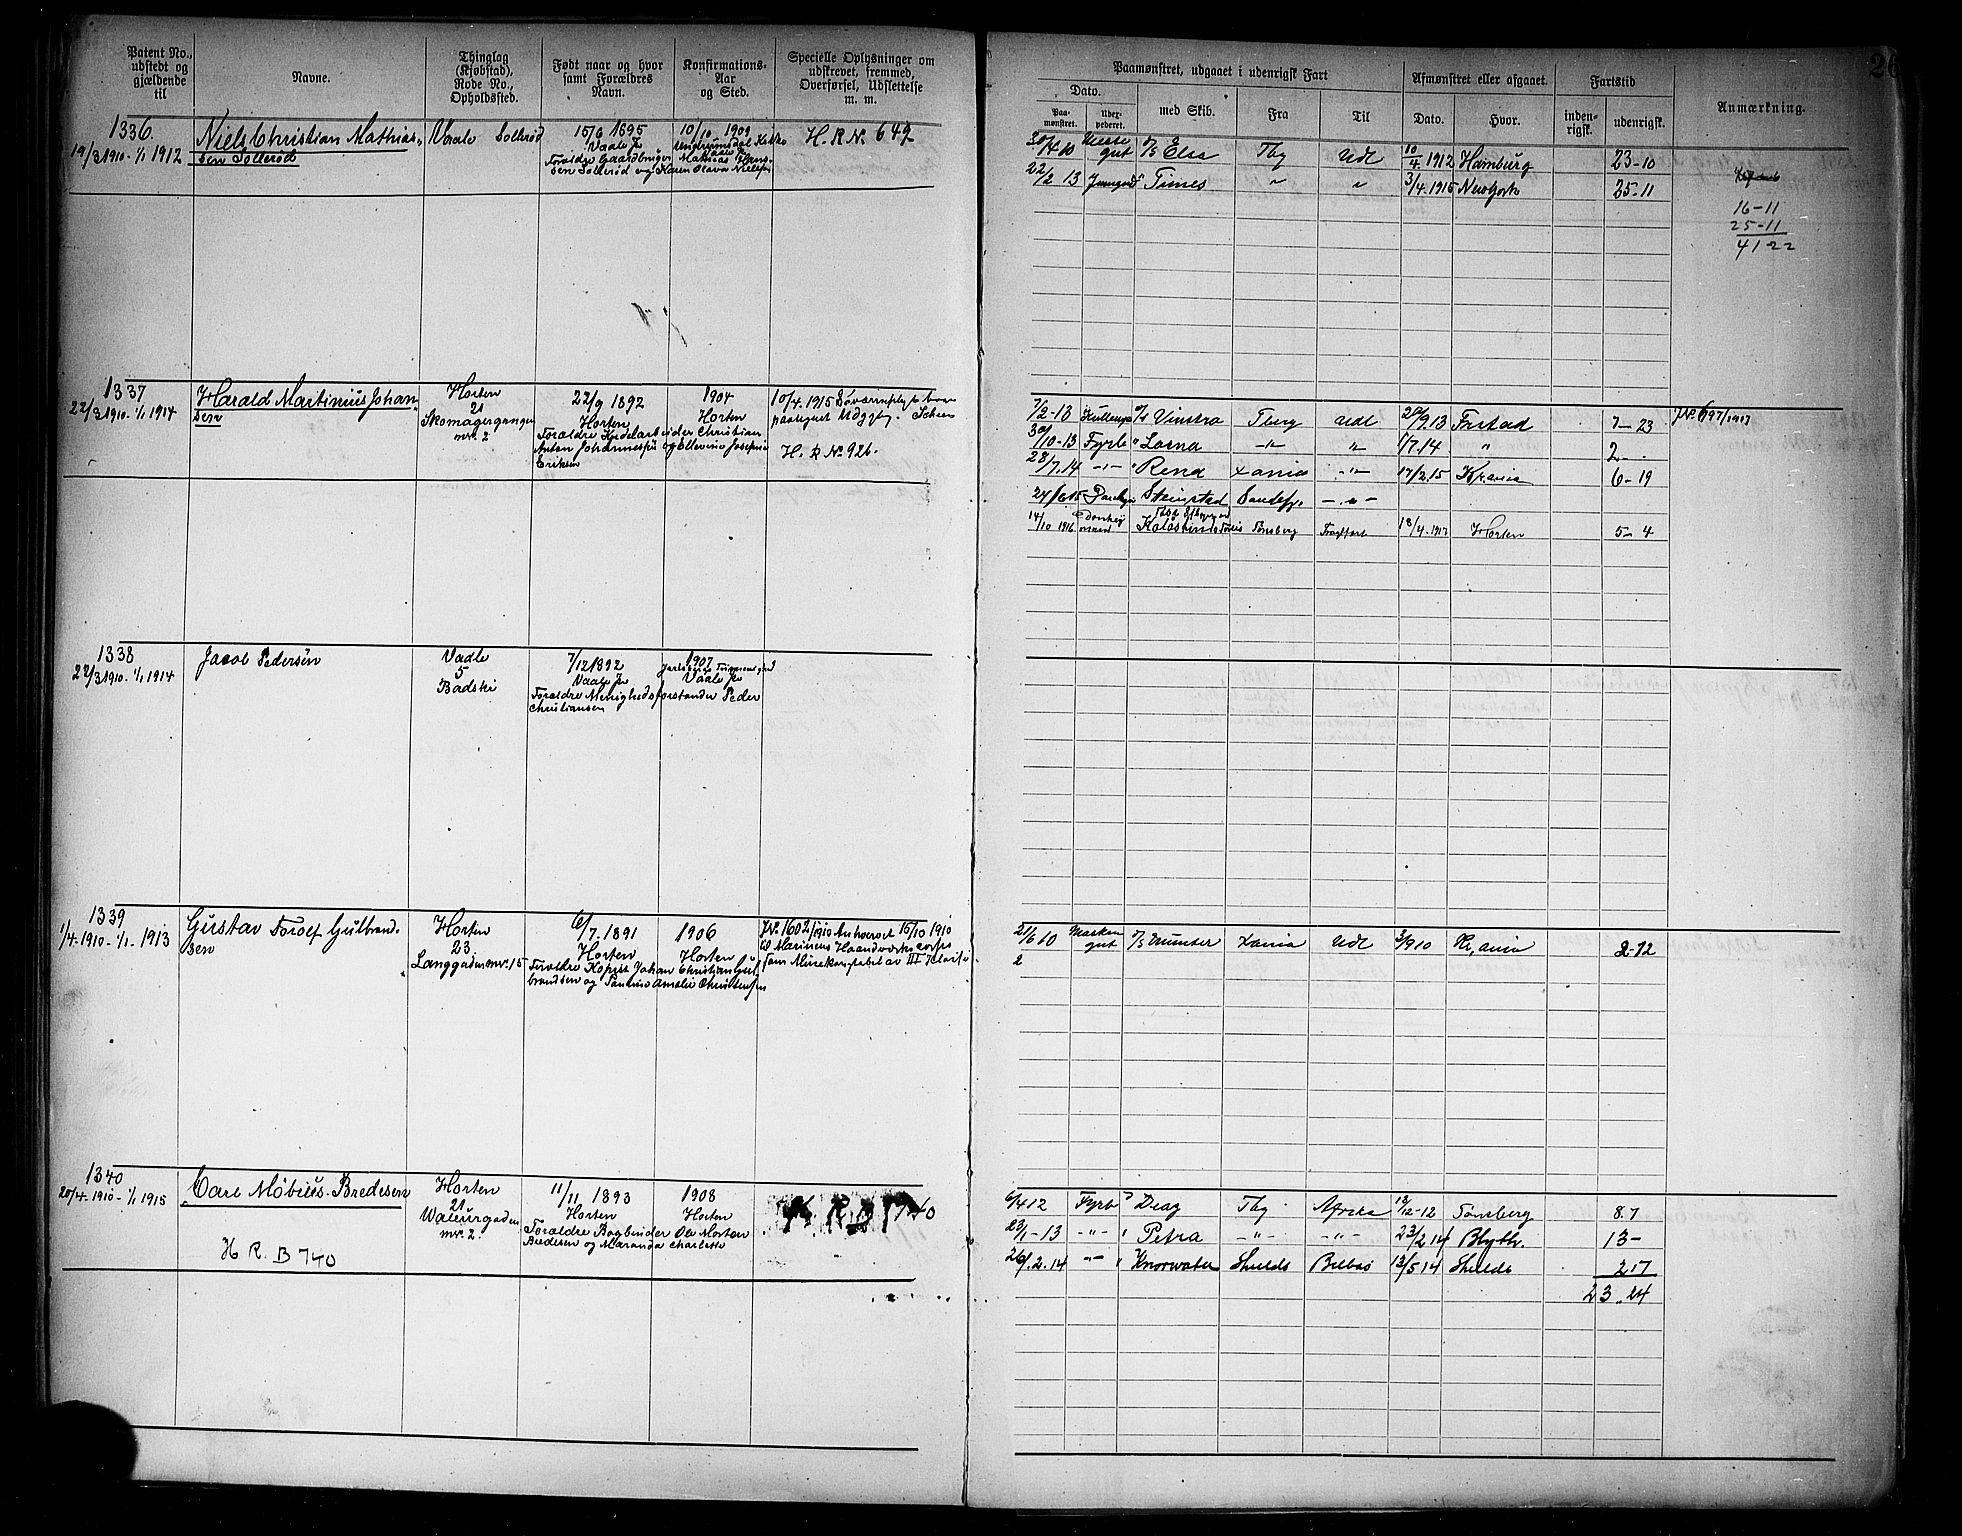 Patent No., udstedt og gjældende til
Navne.
Thinglag (Kjøbstad), Rode No., Opholdssted.
Født naar og hvor samt Forældres Navn.
Konfirmations-Aar og Sted.
Specielle Oplysninger om udskrevet, fremmed, Overførsel, Udslettelse m. m.
Paamønstret, udgaaet i udenrigsk Fart
Afmønstret eller afgaaet.
Fartstid
Anmærkning.
Dato.
Paa-mønstret.
med Skib.
Fra
Til
Dato.
Hvor.
inden-rigsk.
udenrigsk.
1336.
19/3 1910 - 1/1 1912
Niels Christian Mathias-
sen Sollerød
Vaale Sollerød
15/6 1895
Vaale
Forældre Gaardbruger Mathias Hans-
sen Sollerød og Karen Olava Nielsen
10/10 1909
Undrumsdal Kirke
H. R. Nº 649
30/4 10 Messegut Elsa Tbg Udl 10/4 1912 Hamburg 23-10
22/2 13 Jungm Times " " 3/4 1915 NewYork 25-11
16-11
25-11
41-22
1337
22/3 1910 - 1/1 1914
Harald Martinius Johan-
sen
Horten
21
Skomagergangen
nr. 2
22/9 1892
Horten
Forældre Kjedelarbeider Christian
Anton Johannessen og Ellevine Josefine
Eriksen
1904
Horten
10/4 1915
H. R Nº 926.
7/2-13 Vinstra Tberg Udl 28/9 13 7-23
30/10-13 Fyrb " Lorna -"- " 1/7.14 " 2-
28/7.14 -"- " Rena Xania -"- 17/2.15 Krania 6-19
24/6 15 Steinstad Sandefj. -"-
14/10 1916 Donkeymand Tønsberg Fragtfart 18/4.1917 Horten 5-4
Nº 697/1917
1338
22/3 1910 - 1/1 1914
Jacob Pedersen
Vaale
5
7/12 1892
Vaale
Forældre Menighedsforstander Peder
Christiansen
1907
Vaale
1339
1/4-1910 - 1/1 - 1913
Gustav Torolf Gulbrand-
sen
Horten
23
Langgaden nr. 15
6/7 1891
Horten
Forældre Kopist Johan Christian Gul-
brandsen og Pauline Amalie Christensen
1906
Horten
JNº 1602/1910 Anhvervet 15/10 1910
til Marinens Haandværkscorps
som Minekonstabel av III Klasse
21/6 10 Maskingut Munter Xania Udl 3/9 10 Kr,ania 2-12
2
1340
20/4-1910 - 1/1 1915
Carl Møbius Bredesen
H R. B 740
Horten
21
nr. 2
11/11 1893
Horten
Forældre Bogbinder Ole Morten
Bredesen og Maranda Charlotte
1908
Horten
740
6/4 12 Fyrb Deag Tbg Afrika 12/12-12 Tønsberg 8.7
23/1-13 -"- " Petra -"- -"- 23/2 14 Blyth. 13-
26/2.14 -"- " Knorwater Shields Bilbao 13/5 14 Shields 2 17
23.24